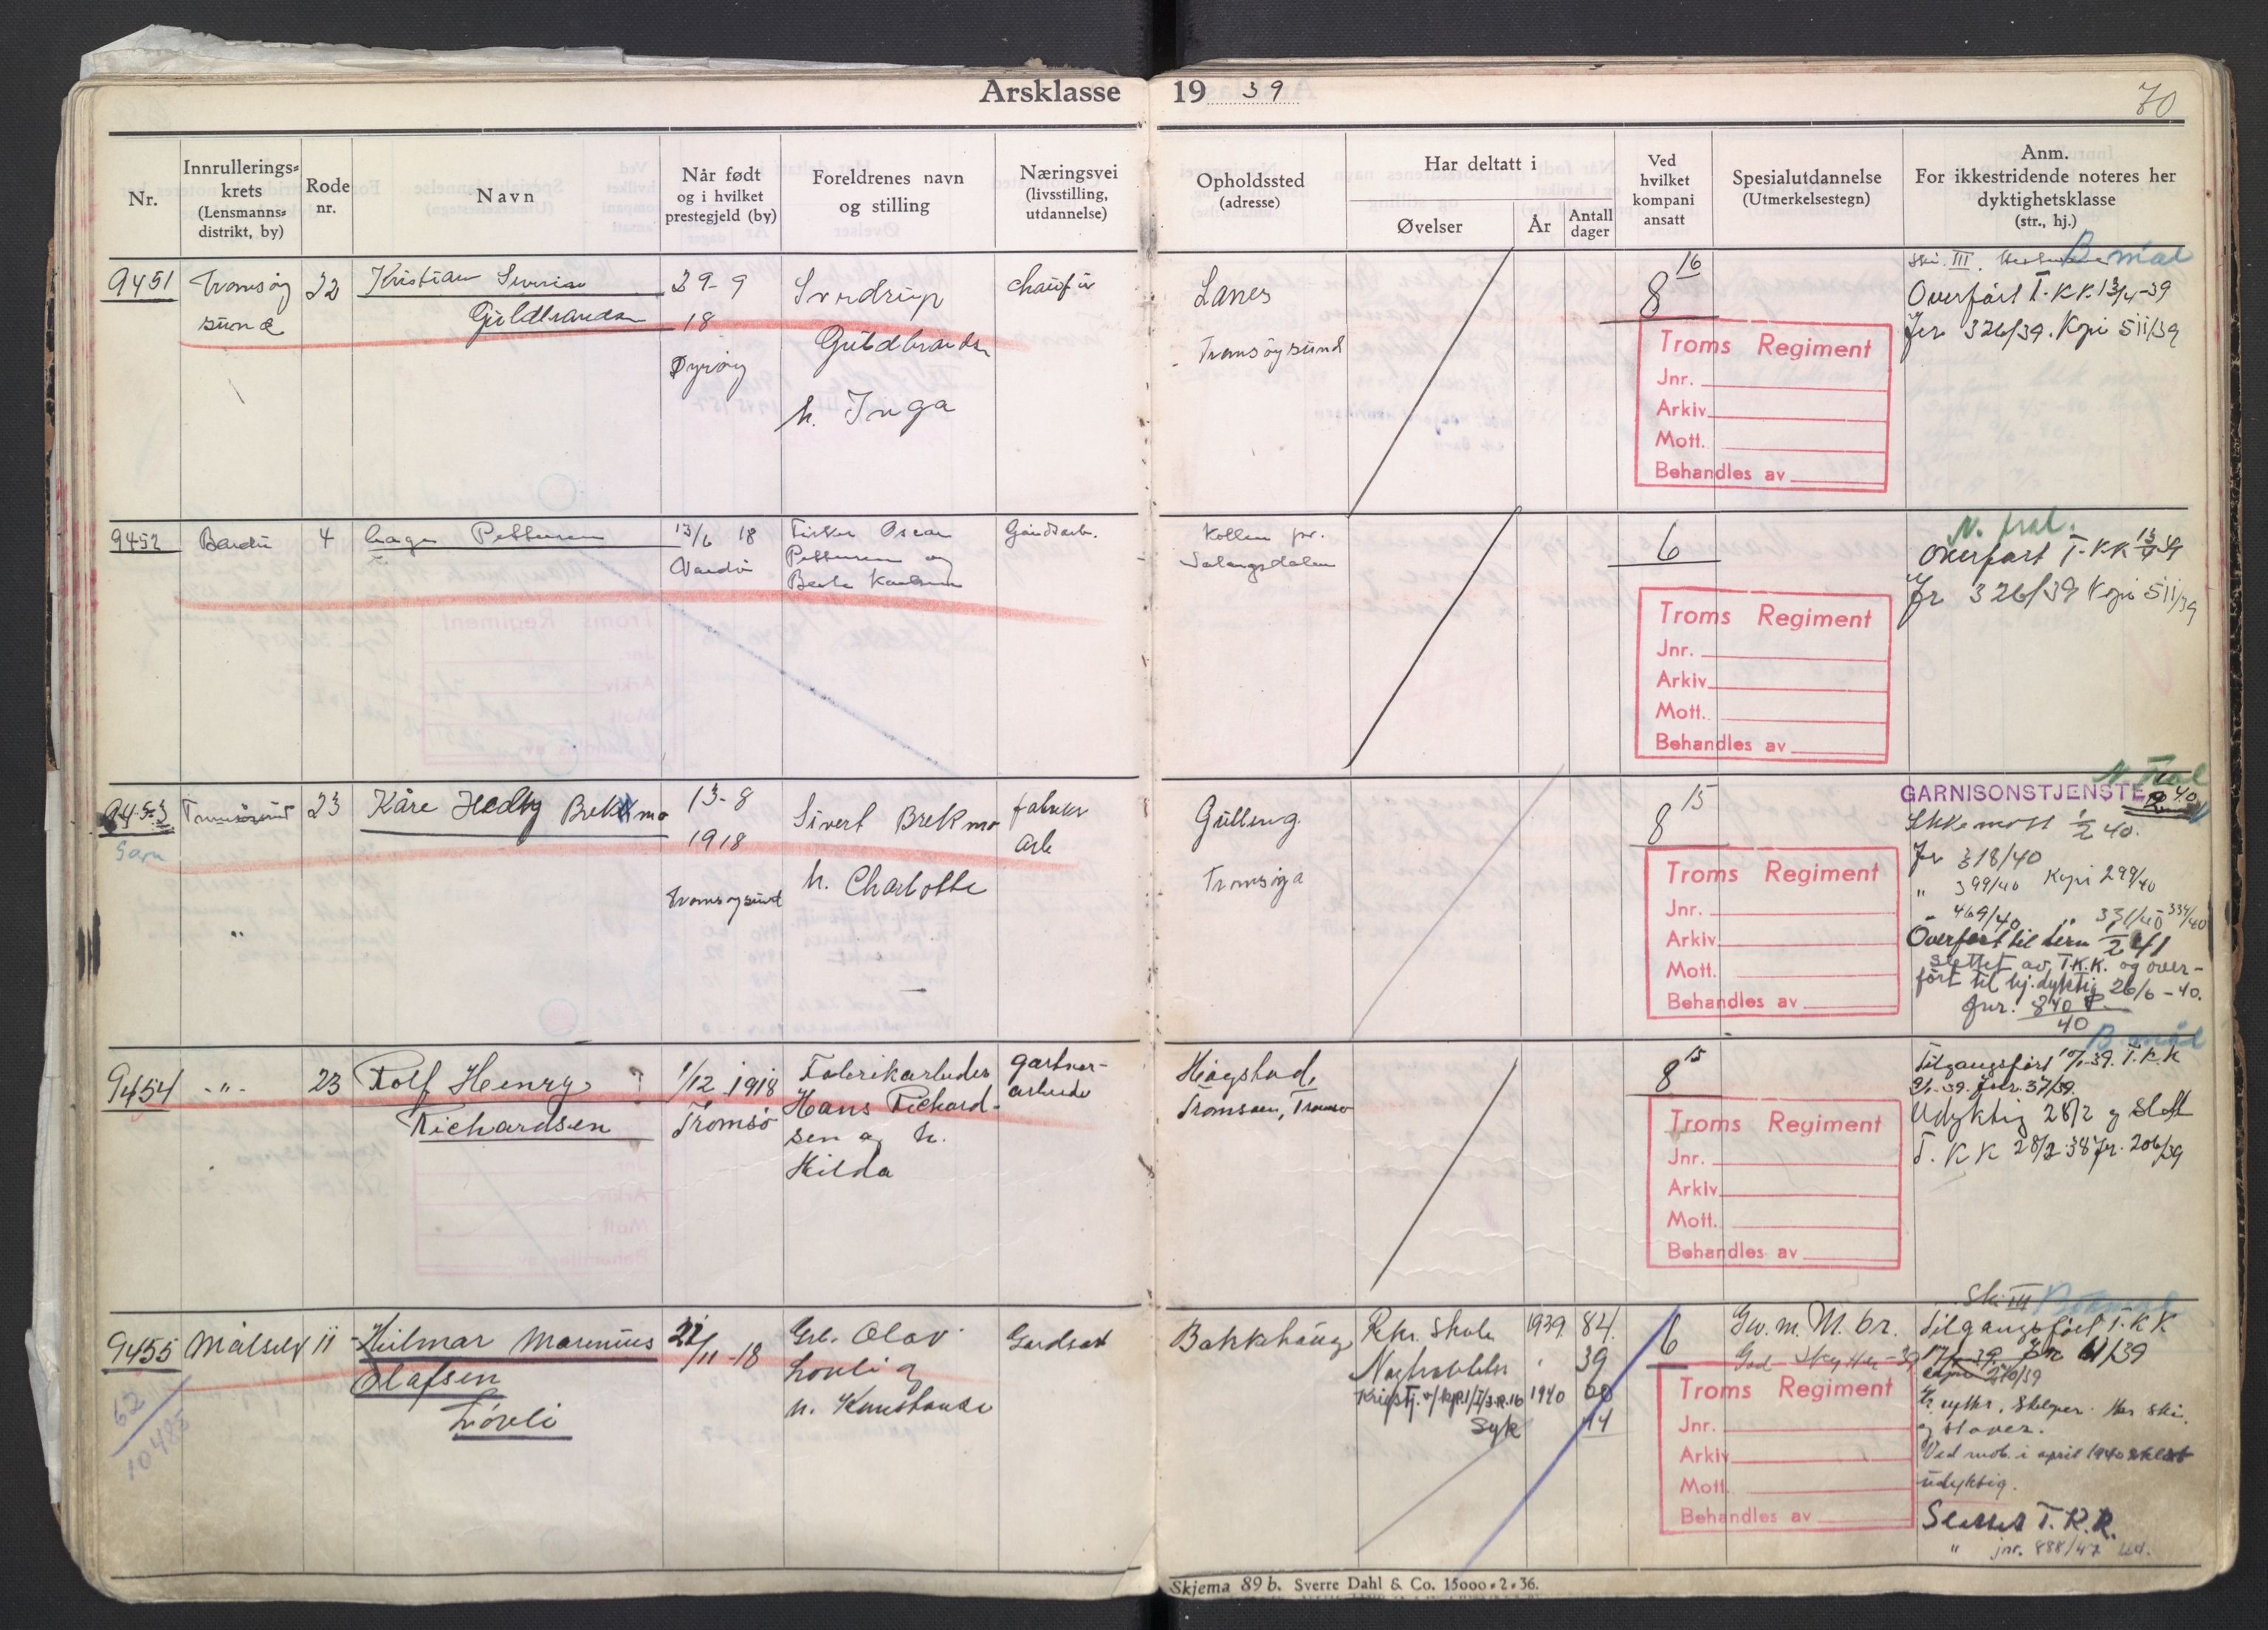 Årsklasse 19 39
70
Nr.
Innrullerings-
krets
(Lensmanns-
distrikt, by)
Rode
nr.
Navn
Når født
og i hvilket
prestegjeld (by)
Foreldrenes navn
og stilling
Næringsvei
(livsstilling,
utdannelse)
Opholdssted
(adresse)
Har deltatt i
Øvelser
År
Antall
dager
Ved
hvilket
kompani
ansatt
Spesialutdannelse
(Utmerkelsestegn)
Anm.
For ikkestridende noteres her
dyktighetsklasse
(str., hj.)
9451
Tromsøy
sund
22
Kristian
Guldbrandsen
29-9
18
Øyrøy
Sverdrup
Guldbrandsen
h. Inga
Chauffør
Lanes
Tromsøysund
8 16
Troms Regiment
Jnr.
Arkiv
Mott.
Behandles av
Ski III.
B. mål
Overført T.KK. 13/4-39
Jr 326/39. Kopi 511/39
9452
Bardu
4
Aage Pettersen
13/6 18
Vardø
Fisker Oscar
Pettersen og
Berta Karlsen
Gårdsarb.
Kollen pr.
Salangsdalen
6
Troms Regiment
Jnr.
Arkiv
Mott.
Behandles av
N. mål.
Overført T.KK 13/4 39
Jr 326/39 Kopi 511/39
9453
Garn
Tromsøysund
23
Kåre Hedly Brekkmo
13-8
1918
Tromsøysund
"
Sivert Brekmo
h. Charlotte
fabrikk
arb
Gulleng
Tromsøya
8 15
Troms Regiment
Jnr.
Arkiv
Mott.
Behandles av
N. mål
GARNISONSTJENSTE
Ikke møtt 1/2 40.
Jr 318/40
" 399/40 Kopi 299/40
469/40 " 331/40 334/40
Overført til 2 41
slettet av T.K.K. og over-
ført til hj.dyktig 26/6-40.
Jnr. 840
40
9454
-"-
23
Rolf Henry
Richardsen
1/12 1918
Tromsø
Fabrikarbeider
Hans Richard-
sen og h.
Hilda
gartner-
arbeider
Høgstad,
Tromsøen, Tromsø
8 15
Troms Regiment
Jnr.
Arkiv
Mott.
Behandles av
B. mål
Tilgangsført 10/1-39. T.K.K
Jnr. 37/39.
Udyktig 28/2 og slett
T.KK 28/2 38 Jr. 206/39
9455
62
10485
Målselv
11
Hilmar Marinius
Olafsen
Løvli
21/11-18
Grb. Olav
Lovli og
h. Konstanse
Gardsarb
Bakkhaug
Rekr. skole 1939 84.
" 39
Krigstj. v/kp.1/I/J.R.16 1940 60
Syk 44
6
Gw. m. M. br.
God skytter -39
Troms Regiment
Jnr.
Arkiv
Mott.
Behandles av
Ski III
Bokmål
Tilgangsført T.KK
Jr 61/39
Kopi 210/39
Er rytter, skiløper. Har ski
og staver.
Ved mob. i april 1940
udyktig.
Slettet T.K.K.
" jnr. 888/42
Skjema 89 b. Sverre Dahl & Co. 15000-2-36.